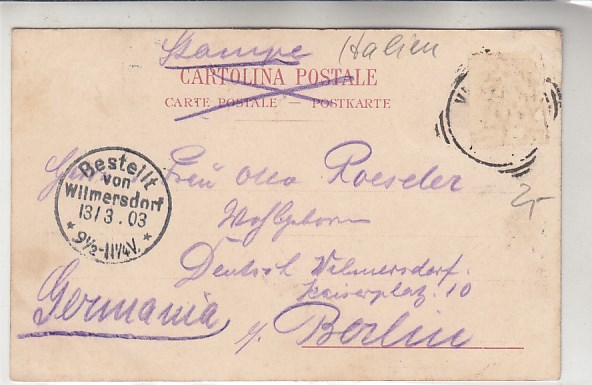 Stampe Italien
CARTOLINA POSTALE
CARTE POSTALE — POSTKARTE
Bestellt
von
Wilmersdorf
13/3.03
* 9½-11¼V. *
Frau Otto Roeseler
Wohlgeboren
Deutsch Wilmersdorf.
Kaiserplatz. 10
Germania b/. Berlin
2,-